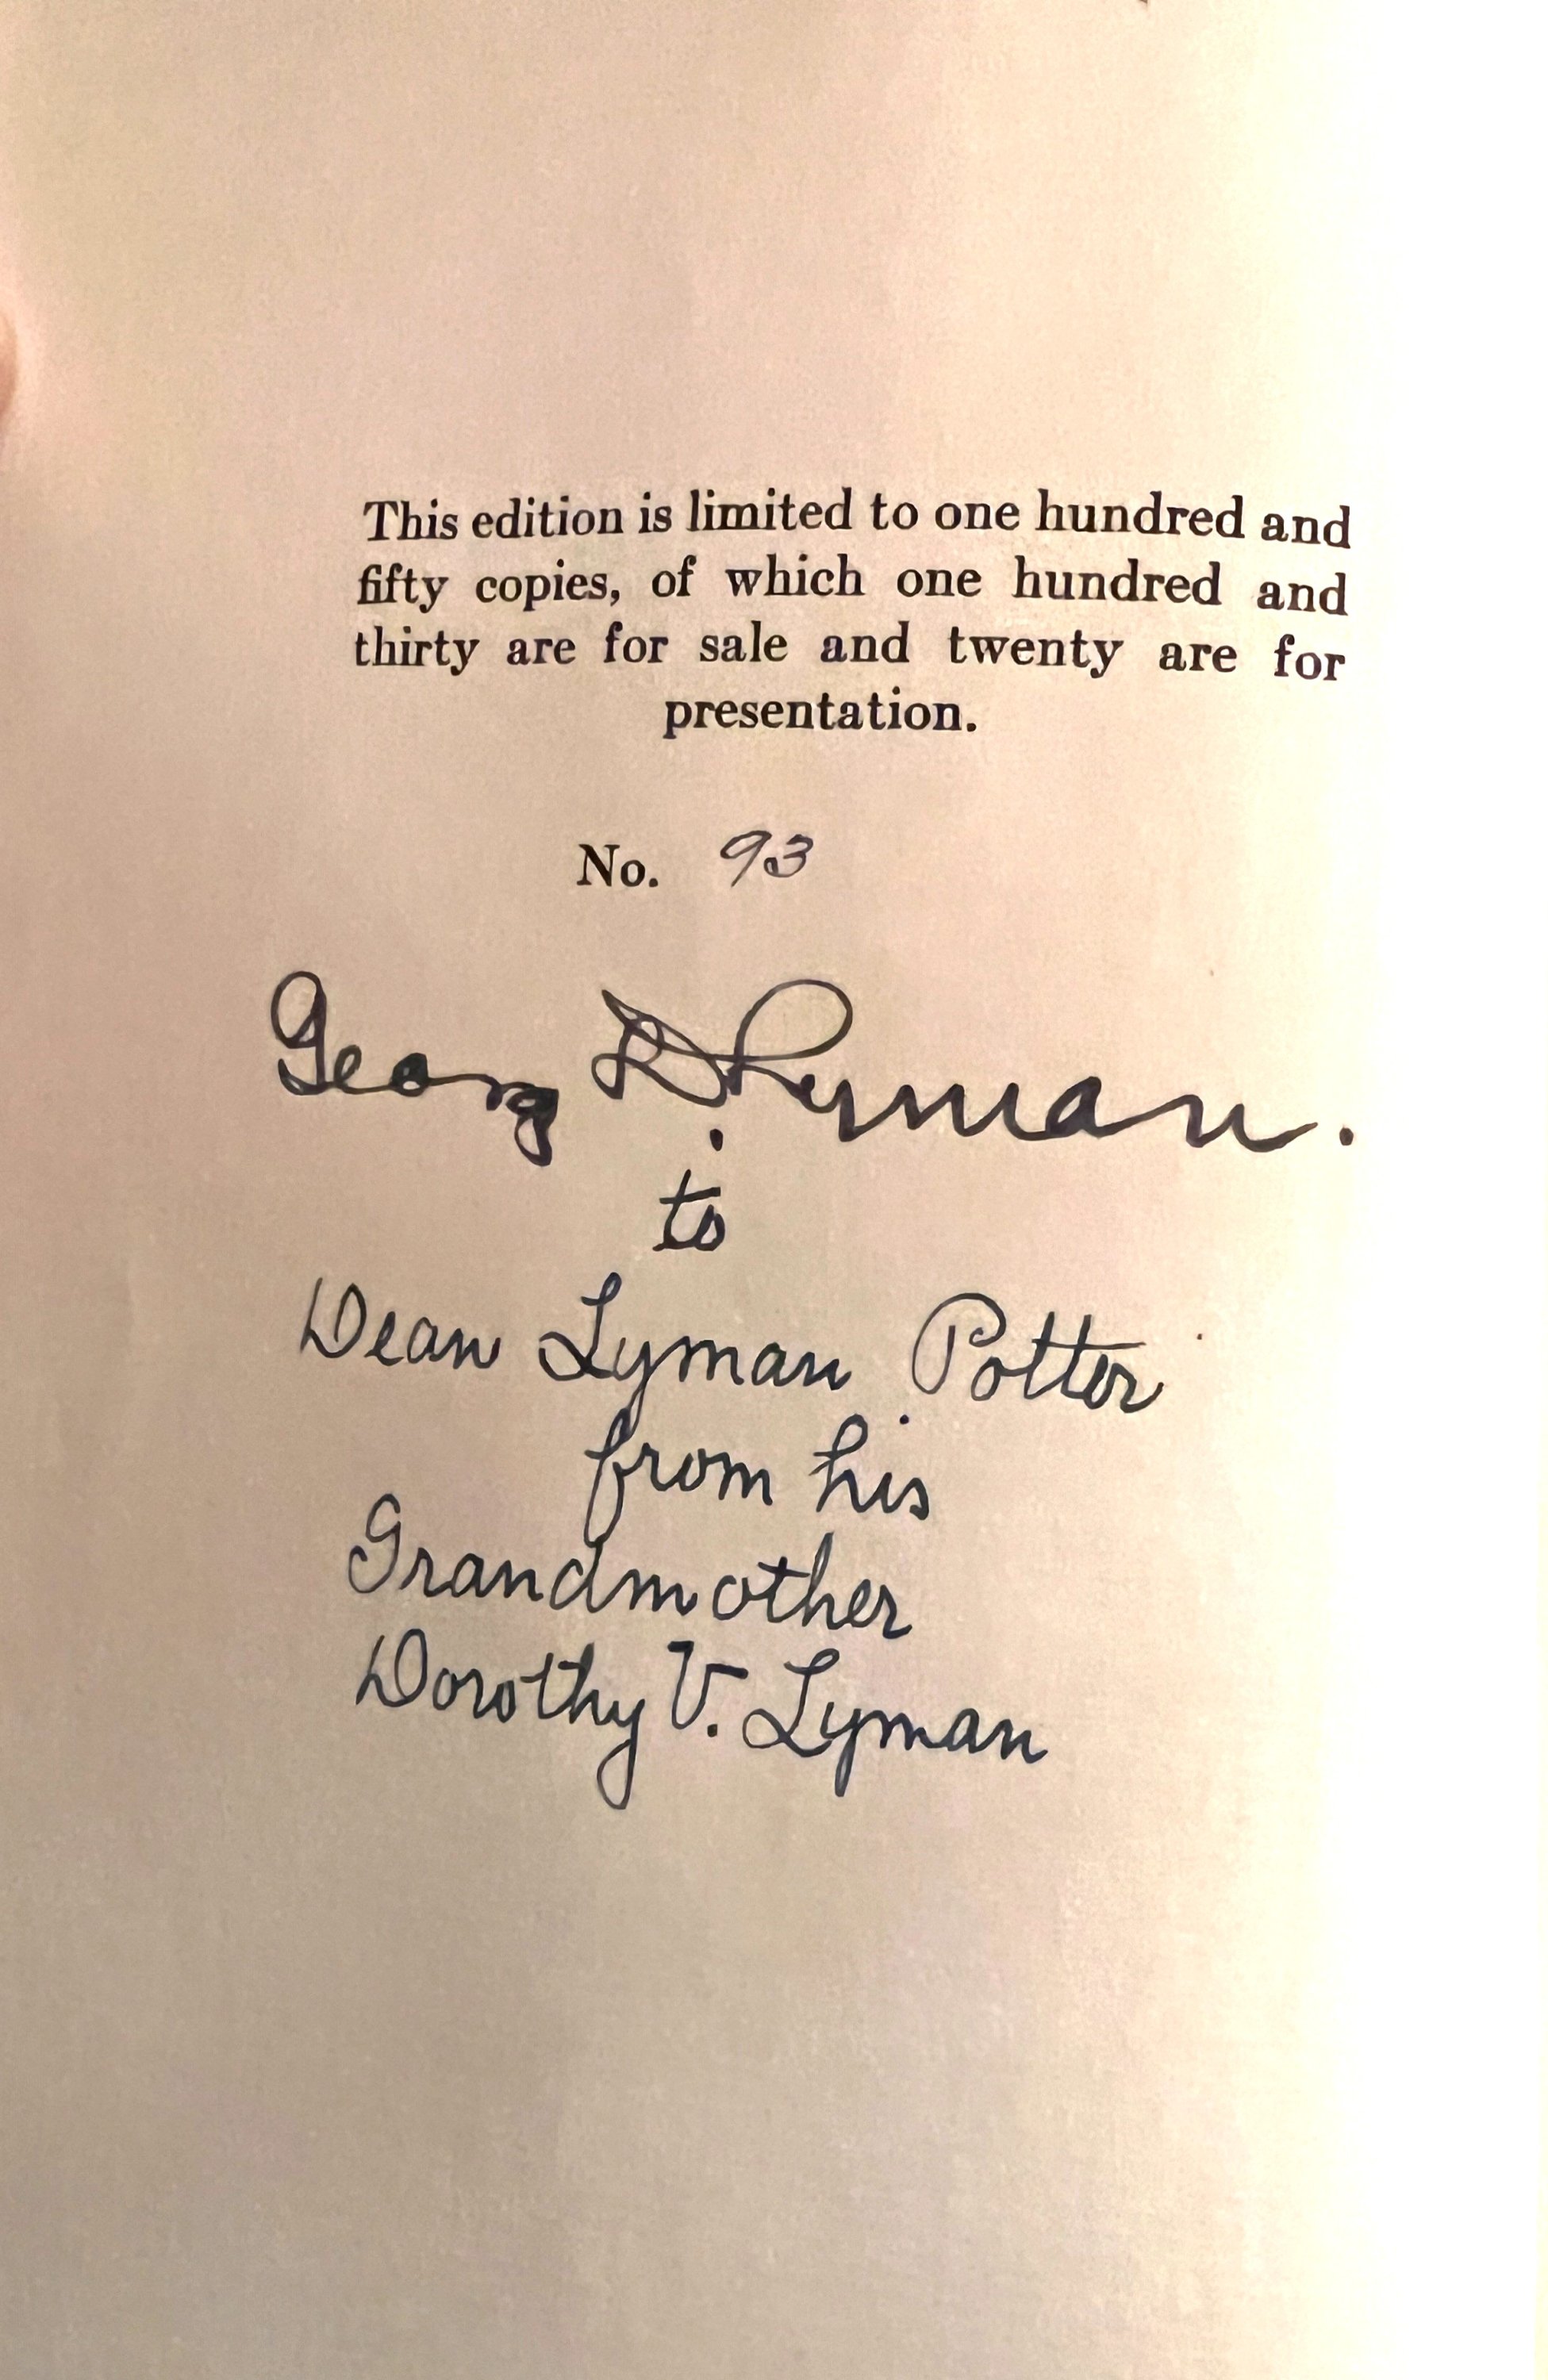 This edition is limited to one hundred and
fifty copies, of which one hundred and
thirty are for sale and twenty are for
presentation.
No. 93
George D. Lyman.
to
Dean Lyman Potter
from his
Grandmother
Dorothy V. Lyman